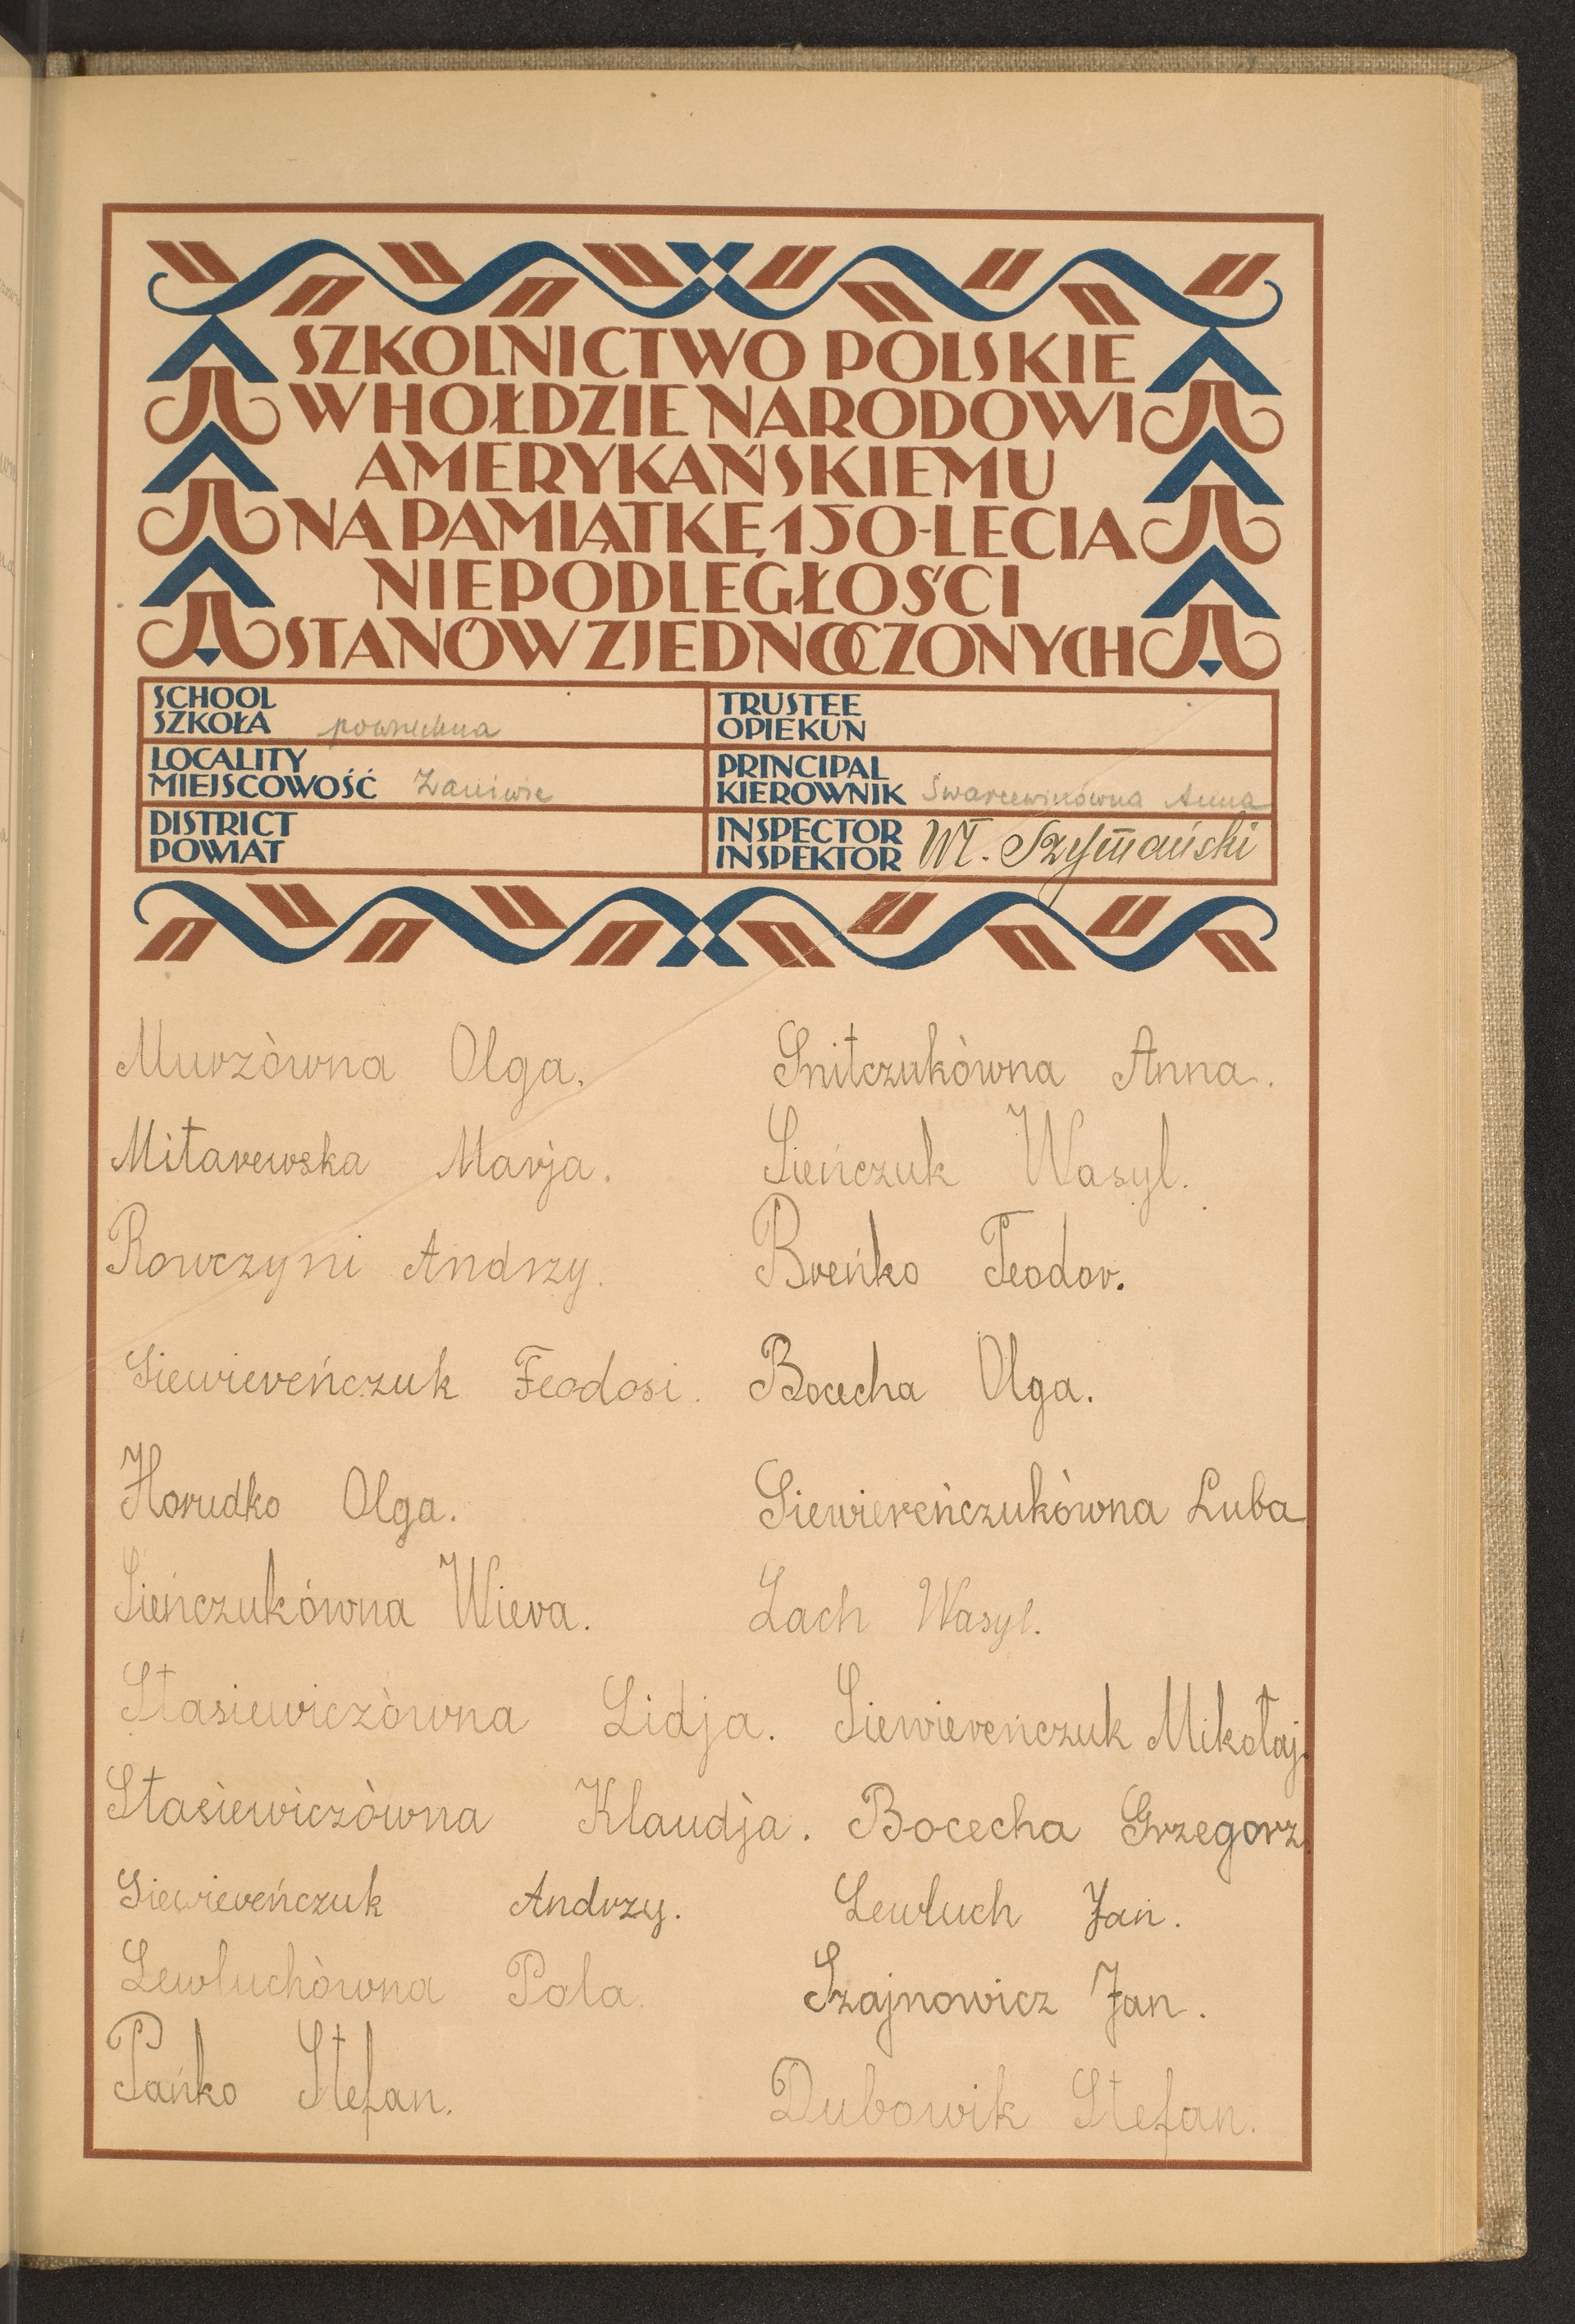 SZKOLNICTWO POLSKIE
W HOŁDZIE NARODOWI
AMERYKAŃSKIEMU
NA PAMIĄTKĘ 150-LECIA
NIEPODLEGŁOŚCI
STANÓW ZJEDNOCZONYCH
SCHOOL
SZKOŁA powszechna
TRUSTEE
OPIEKUN
LOCALITY
MIEJSCOWOŚĆ Zaniwie
PRINCIPAL
KIEROWNIK Anna
DISTRICT
POWIAT
INSPECTOR
INSPEKTOR Wł. Szymański
Murzòwna Olga.
Snitczukòwna Anna.
Mitarewska Marja.
Sieńczuk Wasyl.
Rowczyni Andrzy.
Breńko Teodor.
Siewiereńczuk Feodosi.
Bocecha Olga.
Horudko Olga.
Siewiereńczukòwna Luba
Sieńczukówna Wiera.
Lach Wasyl.
Stasiewiczòwna Lidja.
Siewiereńczuk Mikołaj.
Stasiewiczòwna Klaudja.
Bocecha Grzegorz.
Siewiereńczuk Andrzy.
Lewłuch Jan.
Lewłuchòwna Pola.
Szajnowicz Jan.
Pańko Stefan.
Dubowik Stefan.